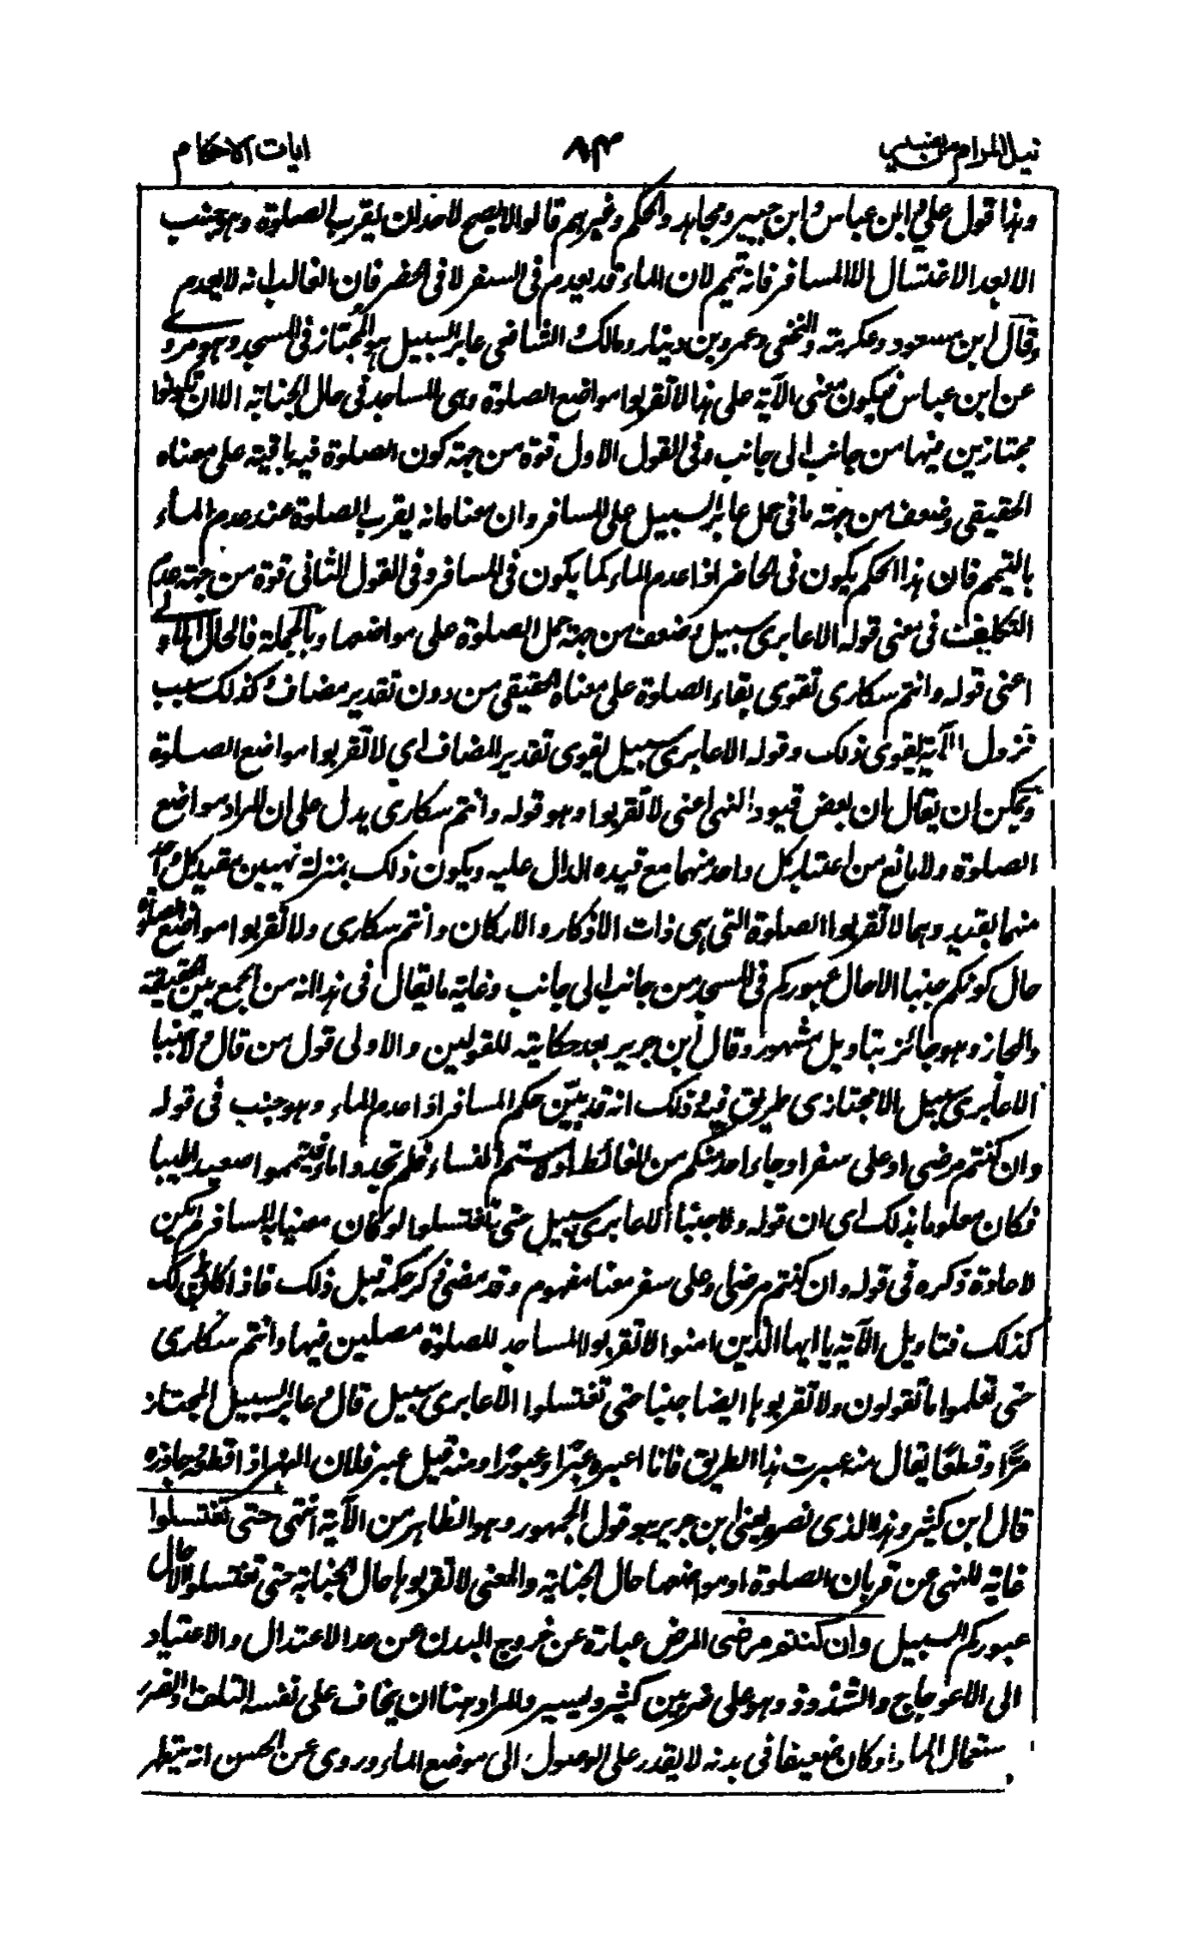 نيل المرام من تفسير ٨٣ ايات الاحكام
وهذا قول علي وابن عباس وابن جبير ومجاهد والحكم وغيرهم قالوا لا يصح لاحد ان يقرب الصلوة وهو جنب
الا بعد الاغتسال الا المسافر فانه تيمم لان الماء قد يعدم في السفر لا في الحضر فان الغالب انه لا يعدم
وقال ابن مسعود وعكرمة والنخعي وعمرو بن دينار ومالك والشافعي عابر السبيل هو المجتاز في المسجد وهو مروي
عن ابن عباس فيكون معنى الآية على هذا لا تقربوا مواضع الصلوة وهي المساجد في حال الجنابة الا ان تكونوا
مجتازين فيها من جانب الى جانب وفي القول الاول قوة من جهة كون الصلوة فيه باقية على معناه
الحقيقي وضعف من جهة ما في حمل عابر السبيل على المسافر وان معناه انه يقرب الصلوة عند عدم الماء
بالتيمم فان هذا الحكم يكون في الحاضر اذا عدم الماء كما يكون في المسافر وفي القول الثاني قوة من جهة عدم
التكلف في معنى قوله الا عابري سبيل وضعف من جهة حمل الصلوة على مواضعها وبالجملة فالحال الاولى
اعني قوله وانتم سكارى تقوى بقاء الصلوة على معناه الحقيقي من دون تقدير مضاف وكذلك سبب
نزول الآية يقوى ذلك وقوله الا عابري سبيل يقوى تقدير المضاف اي لا تقربوا مواضع الصلوة
ويمكن ان يقال ان بعض قيود النهي اعني لا تقربوا وهو قوله وانتم سكارى يدل على ان المراد مواضع
الصلوة ولا مانع من اعتبار كل واحد منهما مع قيده الدال عليه ويكون ذلك بمنزلة نهيين مقيد كل واحد
منهما بقيد وهما لا تقربوا الصلوة التي هي ذات الاذكار والاركان وانتم سكارى ولا تقربوا مواضع الصلوة
حال كونكم جنبا الا حال عبوركم في المسجد من جانب الى جانب وغاية ما يقال في هذا انه من الجمع بين الحقيقة
والمجاز وهو جائز بتاويل مشهور وقال ابن جرير بعد حكايته للقولين والاولى قول من قال ولا جنبا
الا عابري سبيل الا مجتازي طريق فيه وذلك انه قد بيّن حكم المسافر اذا عدم الماء وهو جنب في قوله
وان كنتم مرضى او على سفر او جاء احد منكم من الغائط او لامستم النساء فلم تجدوا ماء فتيمموا صعيدا طيبا
فكان معلوما بذلك اى ان قوله ولا جنبا الا عابري سبيل حتى تغتسلوا لو كان معنيا به المسافر لم يكن
لاعادة ذكره في قوله وان كنتم مرضى او على سفر معنا مفهوم وقد مضى ذكر حكمه قبل ذلك فاذا كان ذلك
كذلك فتاويل الآية يا ايها الذين امنوا لا تقربوا المساجد للصلوة مصلين فيها وانتم سكارى
حتى تعلموا ما تقولون ولا تقربوها ايضا جنبا حتى تغتسلوا الا عابري سبيل قال وعابر السبيل المجتاز
مرًّا وقطعًا يقال منه عبرت هذا الطريق فانا اعبره عبرًا وعبورًا ومنه قيل عبر فلان النهر اذا قطعه وجاوزه
قال ابن كثير وهذا الذي نصره يعني ابن جرير هو قول الجمهور وهو الظاهر من الآية انتهى حتى تغتسلوا
غاية للنهي عن قربان الصلوة او مواضعها حال الجنابة والمعنى لا تقربوها حال الجنابة حتى تغتسلوا الا حال
عبوركم السبيل وان كنتم مرضى المرض عبارة عن خروج البدن عن حد الاعتدال والاعتياد
الى الاعوجاج والشذوذ وهو على ضربين كثير ويسير والمراد هنا ان يخاف على نفسه التلف او الضرر
ستعمال الماء او كان ضعيفا في بدنه لا يقدر على الوصول الى موضع الماء وروى عن الحسن انه يتطهر